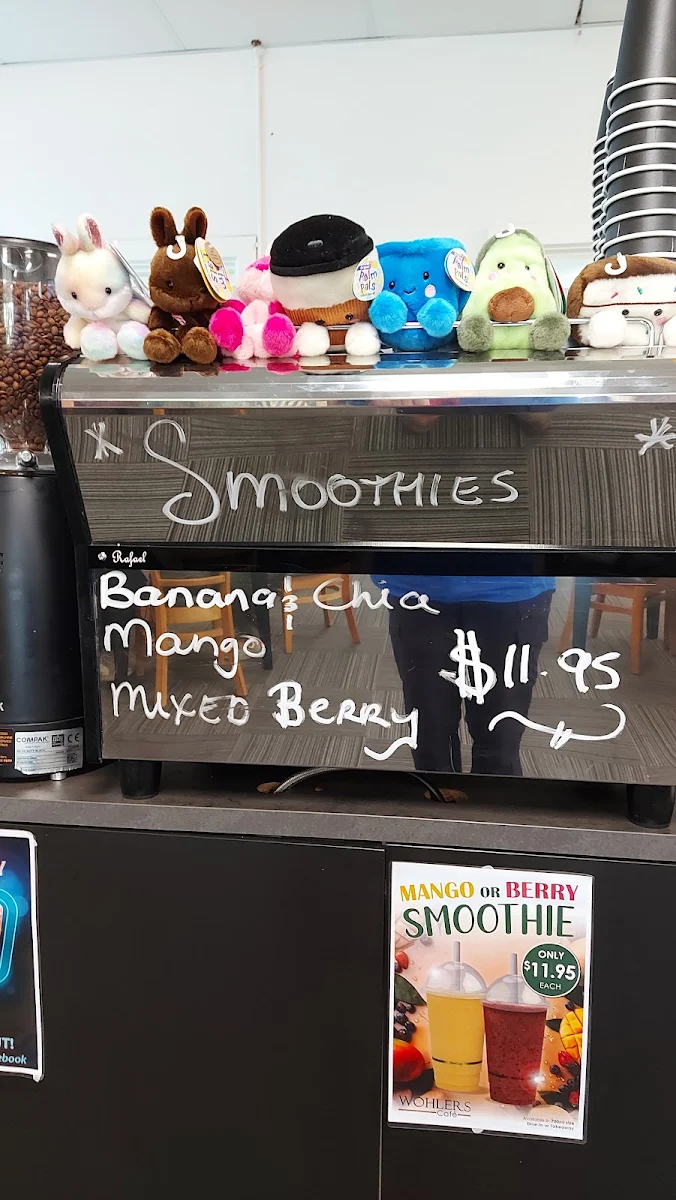 Palm Pals
Palm Pals
* SMOOTHIES *
Rafael
Banana & Chia
Mango
MIXED BERRY
$11.95
COMPAK
CE
MANGO OR BERRY
SMOOTHIE
ONLY
$11.95
EACH
WOHLERS
Café
Y
UT!
ebook